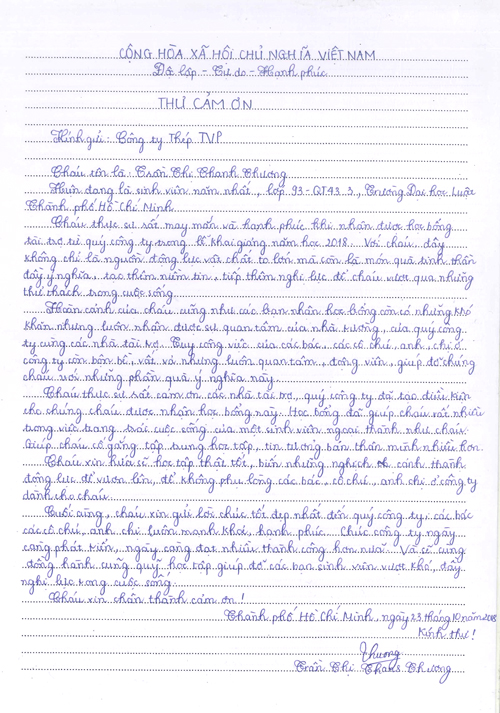 CỘNG HÒA XÃ HỘI CHỦ NGHĨA VIỆT NAM
Độc lập - Tự do - Hạnh phúc
THƯ CẢM ƠN
Kính gửi: Công ty Thép TVP
Cháu tên là: Trần Thị Thanh Thương
Hiện đang là sinh viên năm nhất, lớp 93-QT43.3, Trường Đại học Luật
Thành phố Hồ Chí Minh
Cháu thực sự rất may mắn và hạnh phúc khi nhận được học bổng
tài trợ từ quý công ty trong lễ khai giảng năm học 2018. Với cháu, đây
không chỉ là nguồn động lực vật chất to lớn mà còn là món quà tinh thần
đầy ý nghĩa, tạo thêm niềm tin, tiếp thêm nghị lực để cháu vượt qua những
thử thách trong cuộc sống.
Hoàn cảnh của cháu cũng như các bạn nhận học bổng còn có những khó
khăn nhưng luôn nhận được sự quan tâm của nhà trường, của quý công
ty cùng các nhà tài trợ. Tuy công việc của các bác, các cô chú, anh, chị ở
công ty còn bộn bề, vất vả nhưng luôn quan tâm, động viên, giúp đỡ chúng
cháu với những phần quà ý nghĩa này.
Cháu thực sự rất cảm ơn các nhà tài trợ, quý công ty đã tạo điều kiện
cho chúng cháu được nhận học bổng này. Học bổng đã giúp cháu rất nhiều
trong việc trang trải cuộc sống của một sinh viên ngoại thành như cháu.
Giúp cháu cố gắng tập trung học tập, tin tưởng bản thân mình nhiều hơn.
Cháu xin hứa sẽ học tập thật tốt, biến những nghịch cảnh thành
động lực để vươn lên, để không phụ lòng các bác, cô chú, anh chị ở công ty
dành cho cháu.
Cuối cùng, cháu xin gửi lời chúc tốt đẹp nhất đến quý công ty, các bác
các cô chú, anh chị luôn mạnh khỏe, hạnh phúc. Chúc công ty ngày
càng phát triển, ngày càng đạt nhiều thành công hơn nữa. Và sẽ cùng
đồng hành cùng quỹ học tập giúp đỡ các bạn sinh viên vượt khó, đầy
nghị lực trong cuộc sống.
Cháu xin chân thành cảm ơn!
Thành phố Hồ Chí Minh, ngày 23 tháng 10 năm 2018
Kính thư!
Thương
Trần Thị Thanh Thương